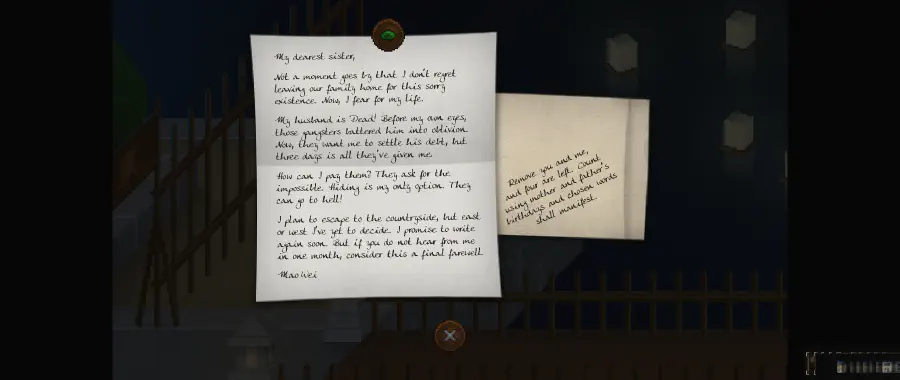 My dearest sister,
Not a moment goes by that I don't regret
leaving our family home for this sorry
existence. Now, I fear for my life.
My husband is Dead! Before my own eyes,
those gangsters battered him into oblivion.
Now, they want me to settle his debt, but
three days is all they've given me.
How can I pay them? They ask for the
impossible. Hiding is my only option. They
can go to hell!
I plan to escape to the countryside, but east
or west I've yet to decide. I promise to write
again soon. But if you do not hear from me
in one month, consider this a final farewell.
-Mao Wei
Remove you and me,
and four are left. Count
using mother and father's
birthdays and chosen words
shall manifest.